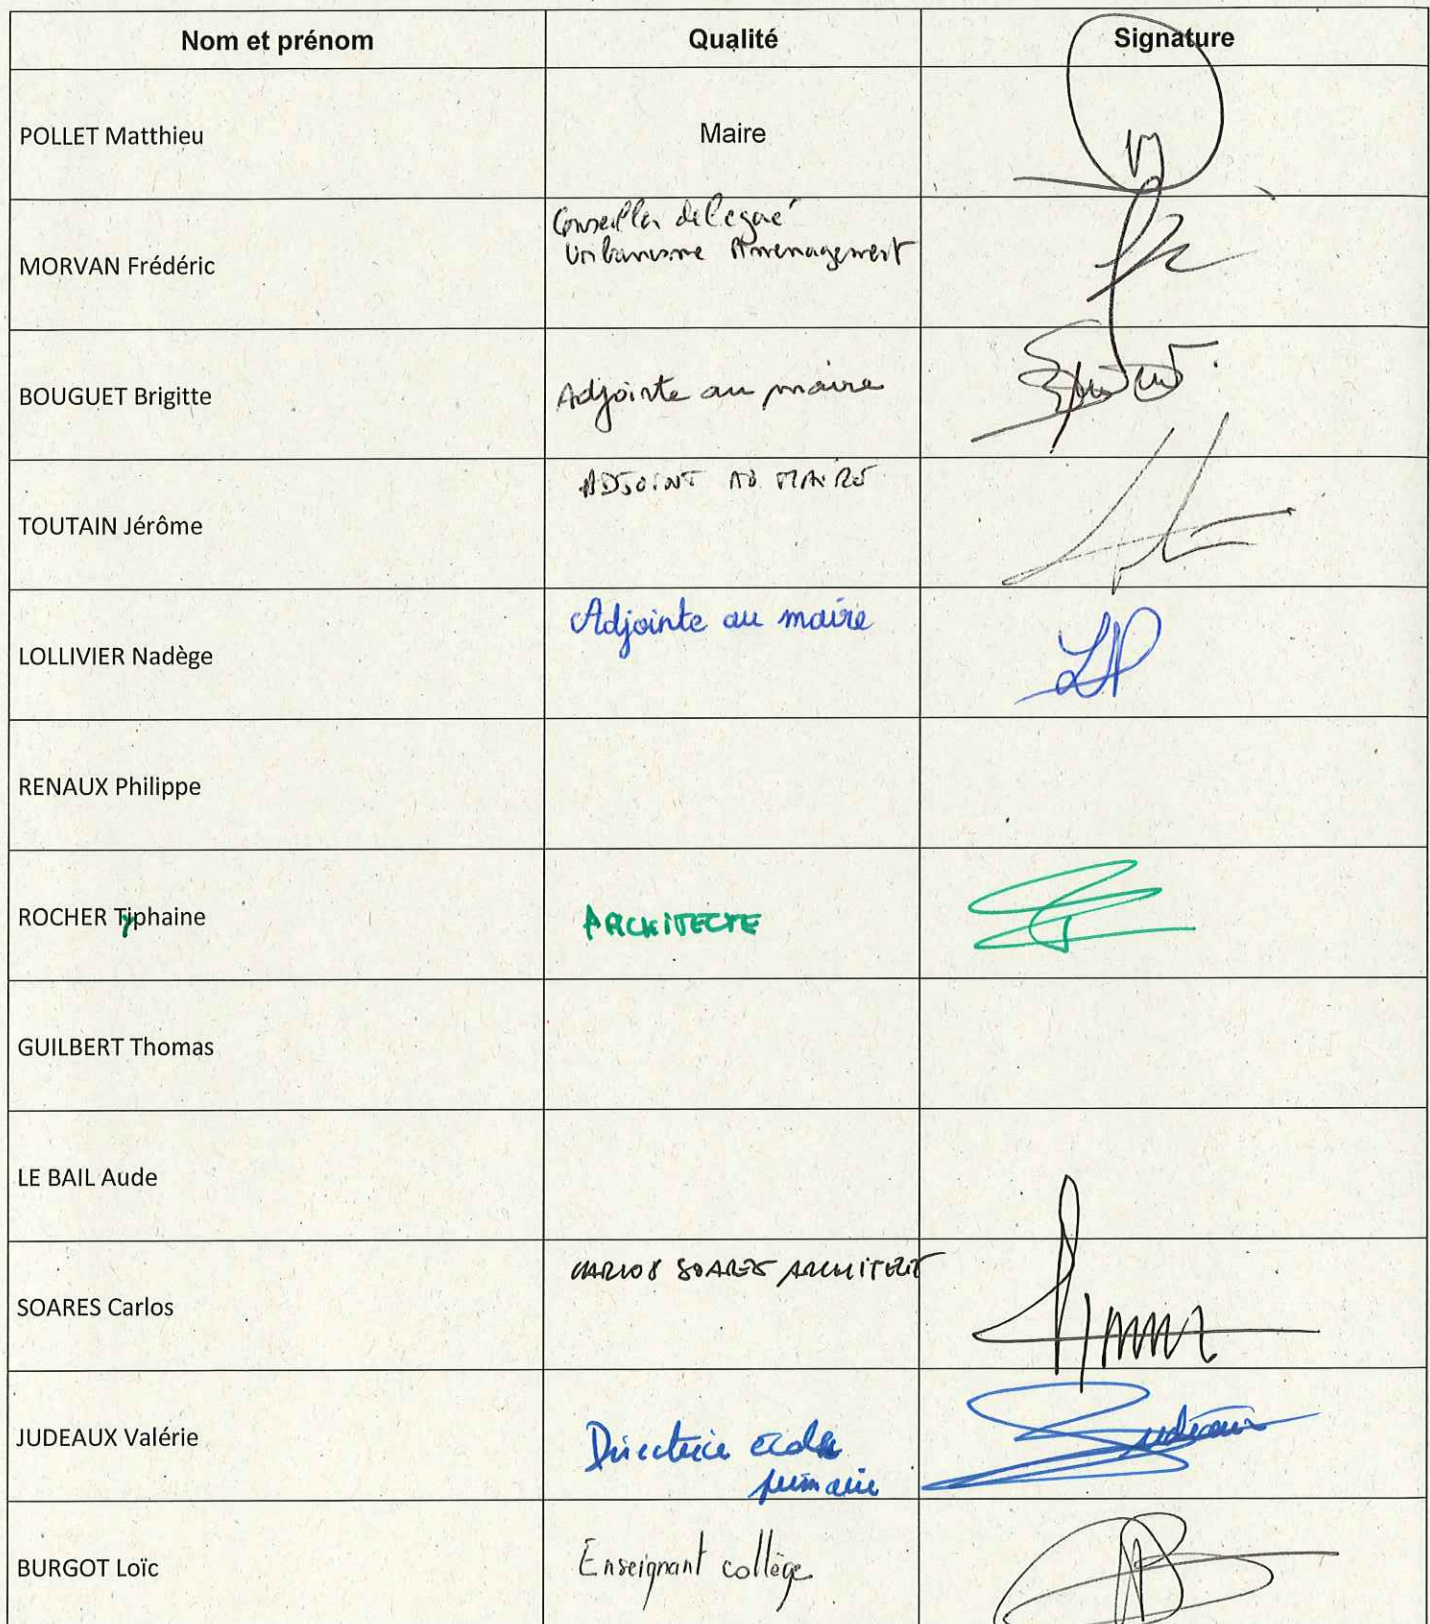 Nom et prénom Qualité Signature
POLLET Matthieu Maire
MORVAN Frédéric Conseiller délégué
Urbanisme Aménagement
BOUGUET Brigitte Adjointe au maire
TOUTAIN Jérôme ADJOINT AU MAIRE
LOLLIVIER Nadège Adjointe au maire
RENAUX Philippe
ROCHER Typhaine ARCHITECTE
GUILBERT Thomas
LE BAIL Aude
SOARES Carlos CARLOS SOARES ARCHITECTE
JUDEAUX Valérie Directrice école Judeaux
primaire
BURGOT Loïc Enseignant collège